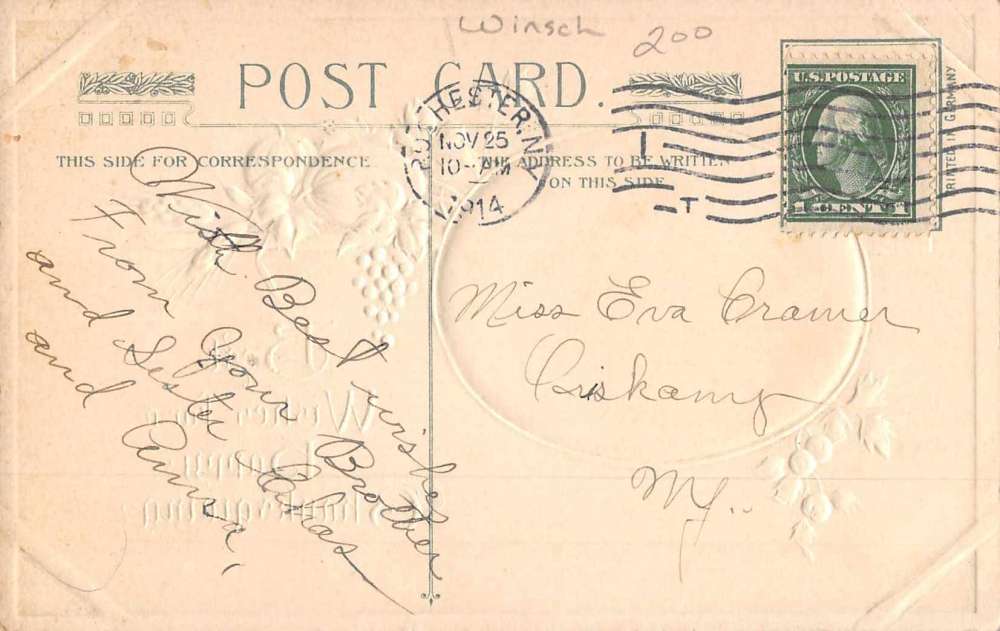 Winsch 200
POST CARD.
THIS SIDE FOR CORRESPONDENCE
THE ADDRESS TO BE WRITTEN
ON THIS SIDE
ROCHESTER, N.Y.
NOV 25
10-AM
1914
U.S. POSTAGE
1 CENT 1
PRINTED IN GERMANY
With Best wishes
From your Brother
and Sester Chas
and Anna
Miss Eva Cramer
N.Y.
Best Wishes for a
Happy
Thanksgiving